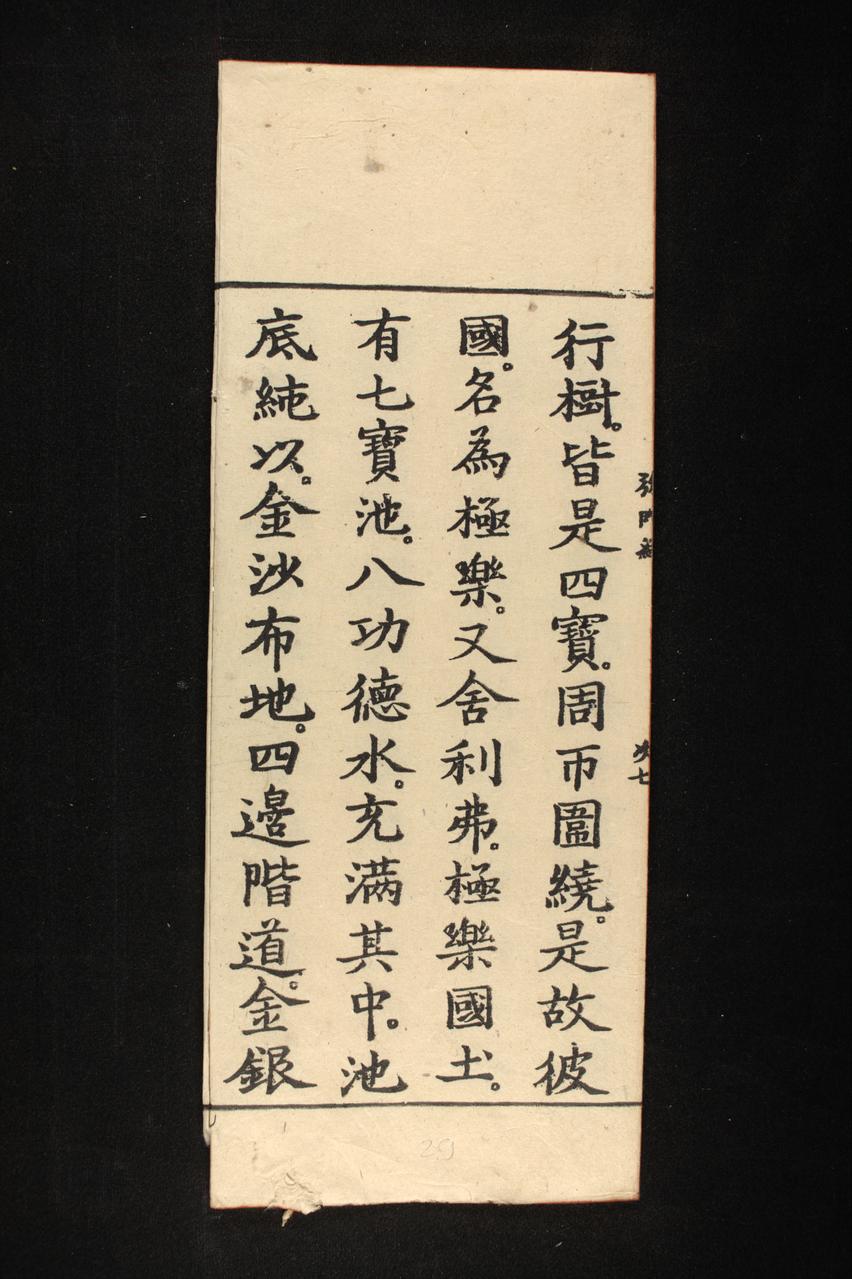 行樹。皆是四寶。周帀圍繞。是故彼
國。名為極樂。又舍利弗。極樂國土。
有七寶池。八功德水。充滿其中。池
底純以。金沙布地。四邊階道。金銀
七
29